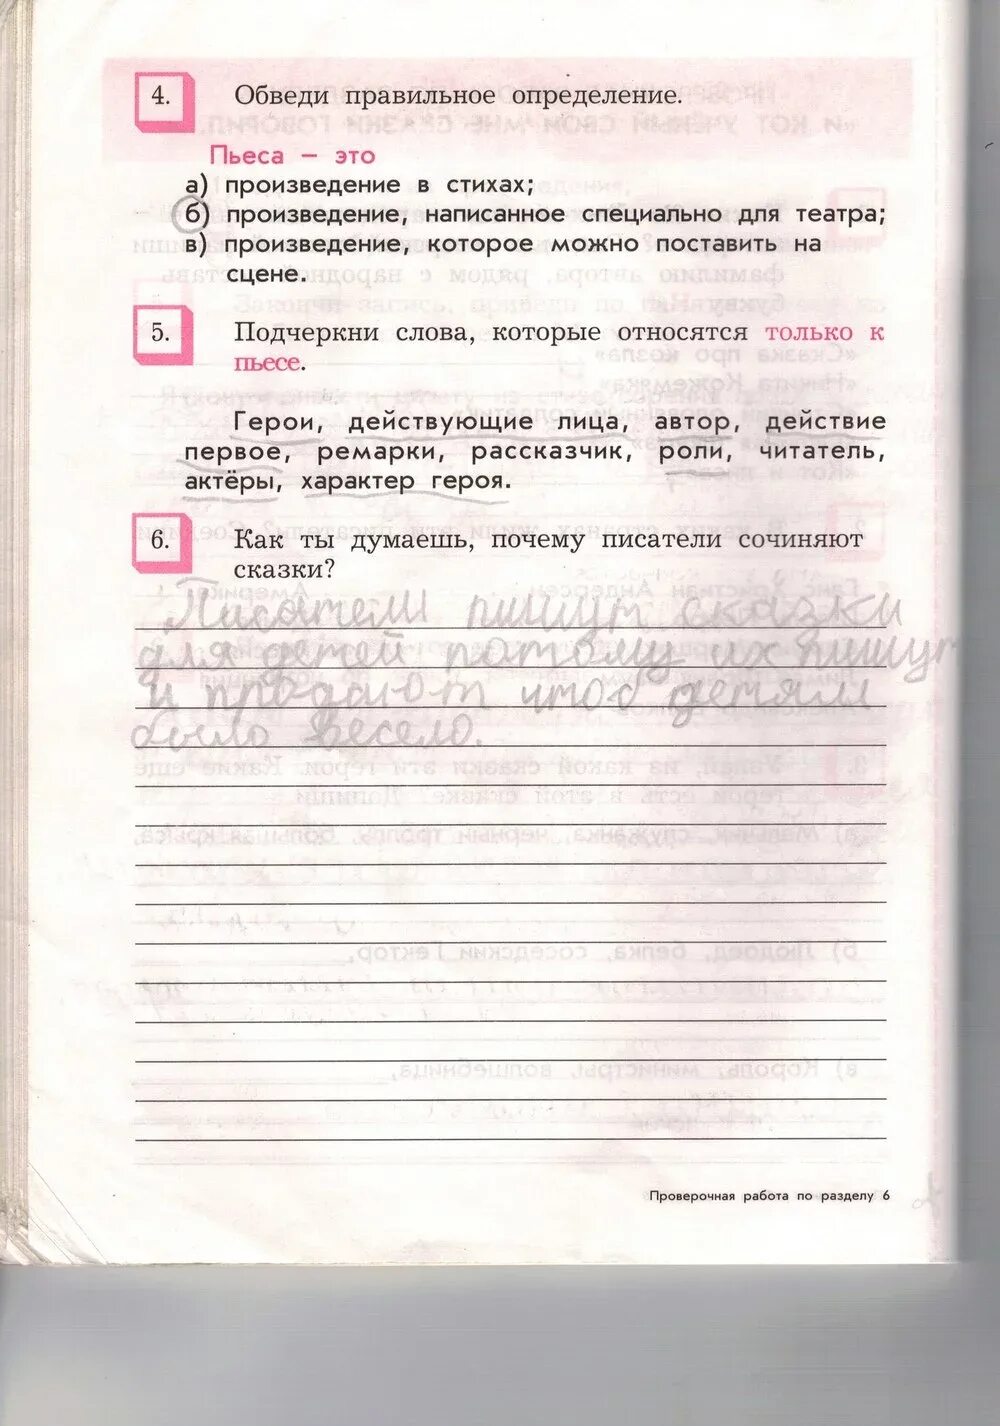 4. Обведи правильное определение.
Пьеса – это
а) произведение в стихах;
б) произведение, написанное специально для театра;
в) произведение, которое можно поставить на
сцене.
5. Подчеркни слова, которые относятся только к
пьесе.
Герои, действующие лица, автор, действие
первое, ремарки, рассказчик, роли, читатель,
актёры, характер героя.
6. Как ты думаешь, почему писатели сочиняют
сказки?
Писатели пишут сказки
для детей потому их пишут
и продают чтоб детям
было весело.
Проверочная работа по разделу 6